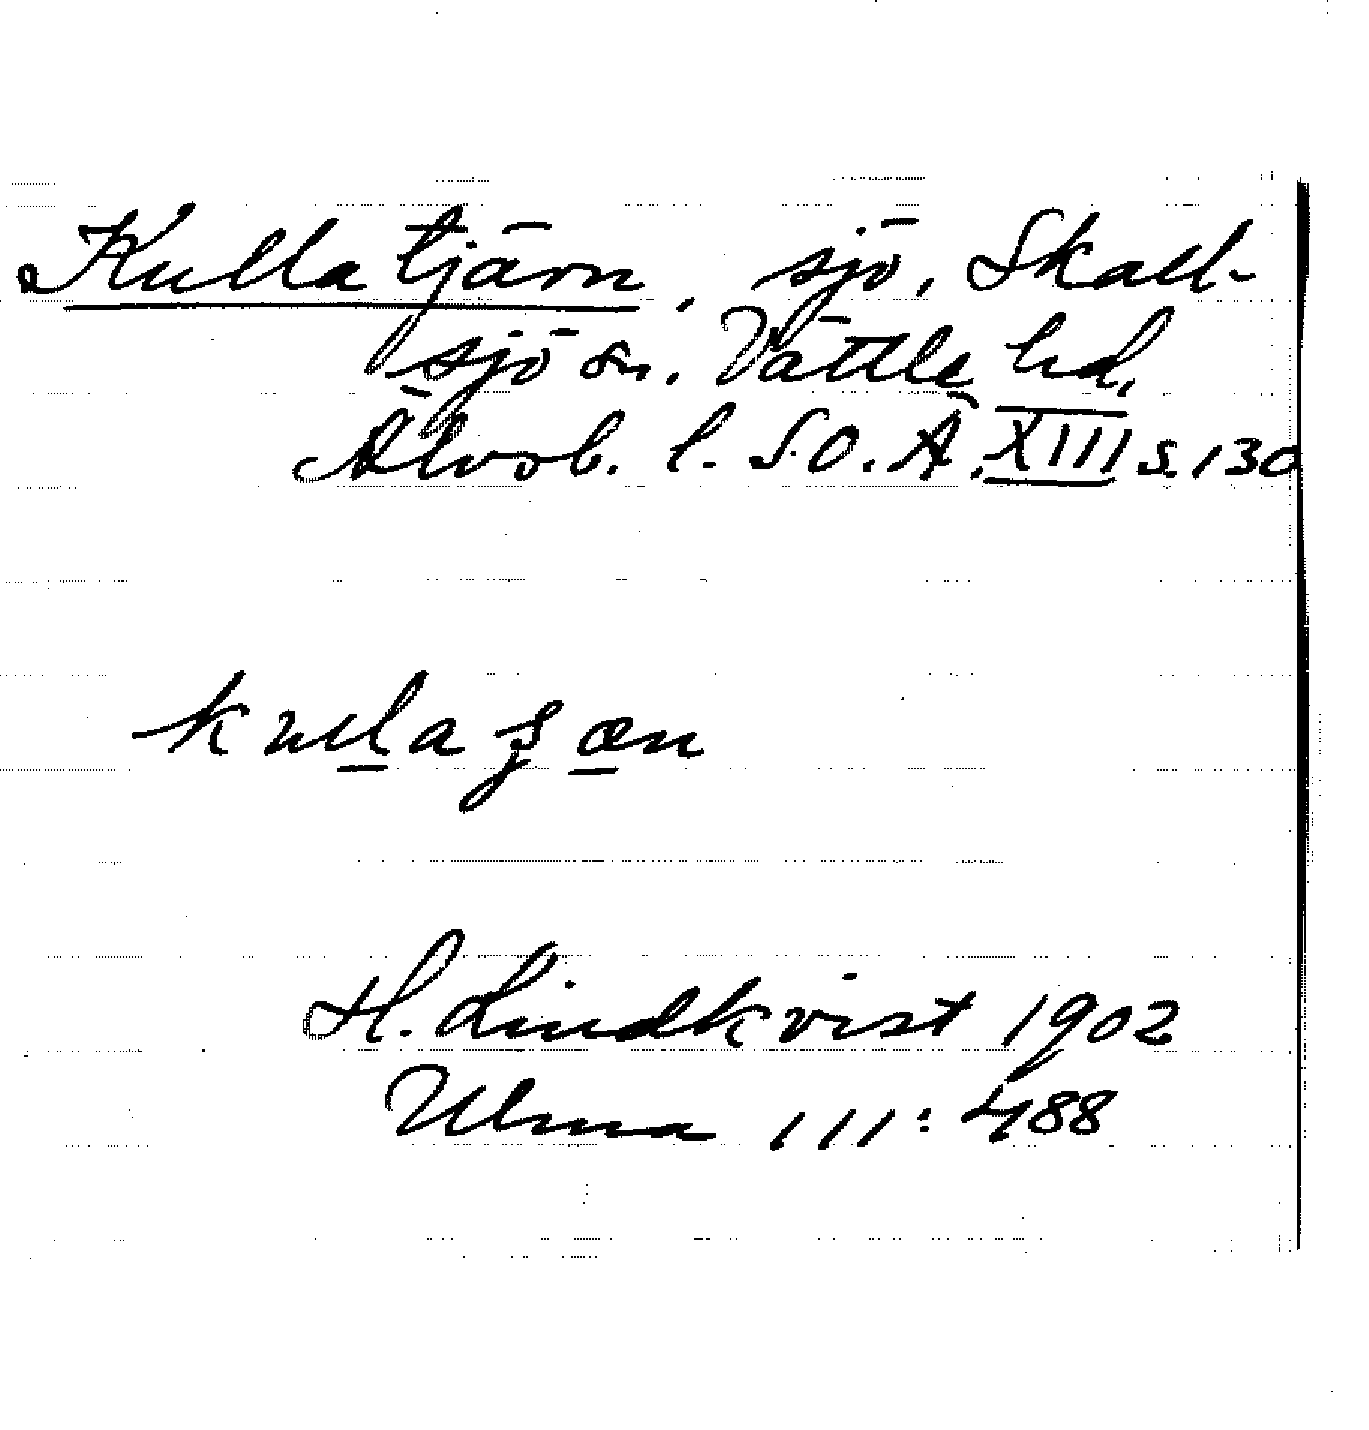 Kullatjärn, sjö, Skall-
sjö sn. Vättle hd,
Älvsb. l. S.O.Ä. XIII s. 130
H. Lindkvist 1902
Ulma 111:488